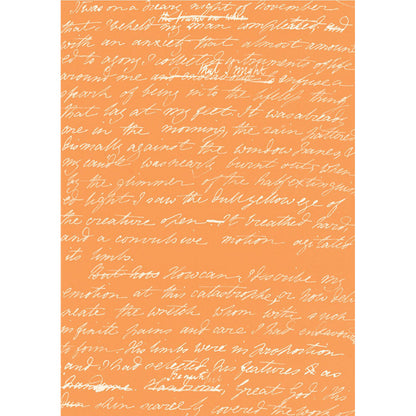 It was on a dreary night of November
the frame on whic
that I beheld my man compleated and
with an anxiety that almost amoun
ted to agony, I collected instruments of life
that I might
around me and infuse a
spark of being into the lifeless thing
that lay at my feet. It was already
one in the morning, the rain pattered
dismally against the window panes, &
my candle was nearly burnt out, when
by the glimmer of the half extinguish
ed light I saw the dull yellow eye of
the creature open. It breathed hard,
and a convulsive motion agitated
its limbs.
But how How can I describe my
emotion at this catastrophe, or how deli
neate the wretch whom with such
infinite pains and care I had endeavoured
to form. His limbs were in proportion
and I had selected his features as
handsome Handsome, Great God! His
skin scarcely covered the work